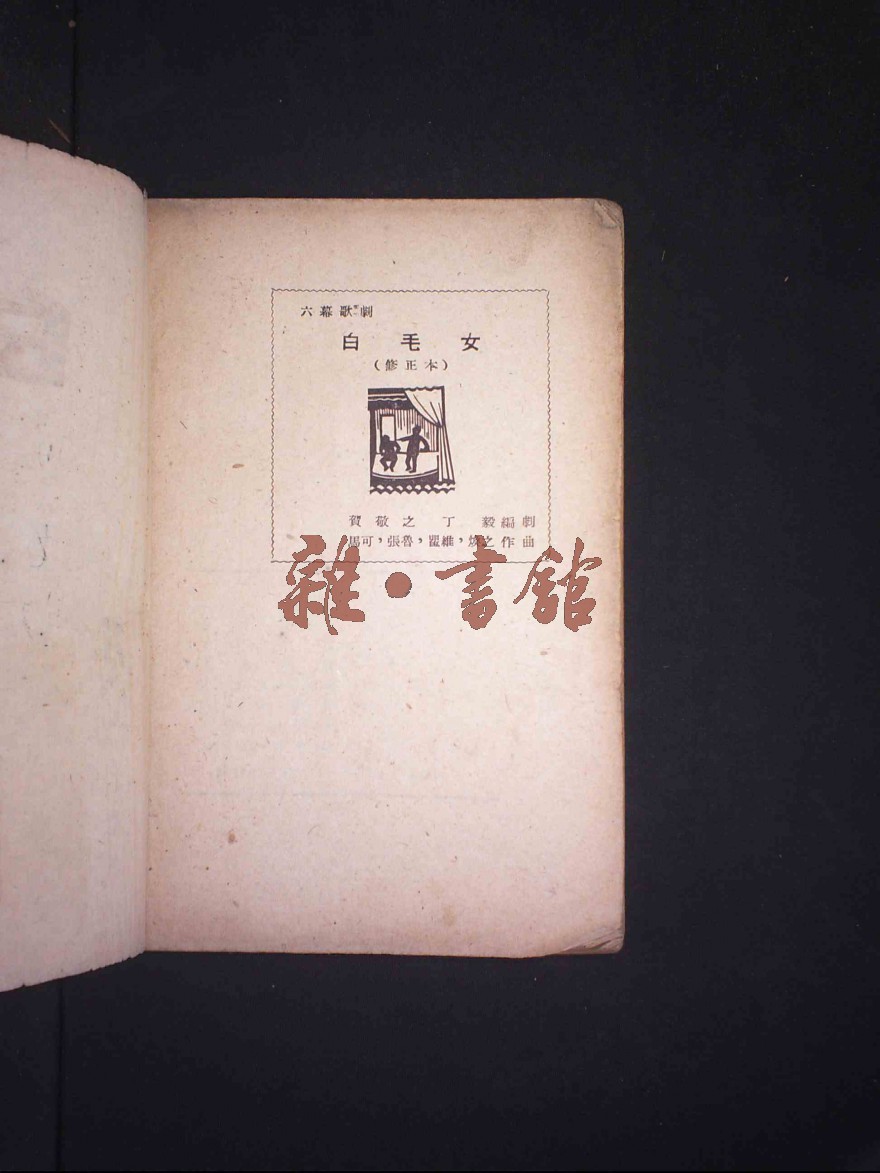 六幕歌劇
白毛女
(修正本)
賀敬之 丁毅編劇
馬可，張魯，瞿維，煥之作曲
雜•書館